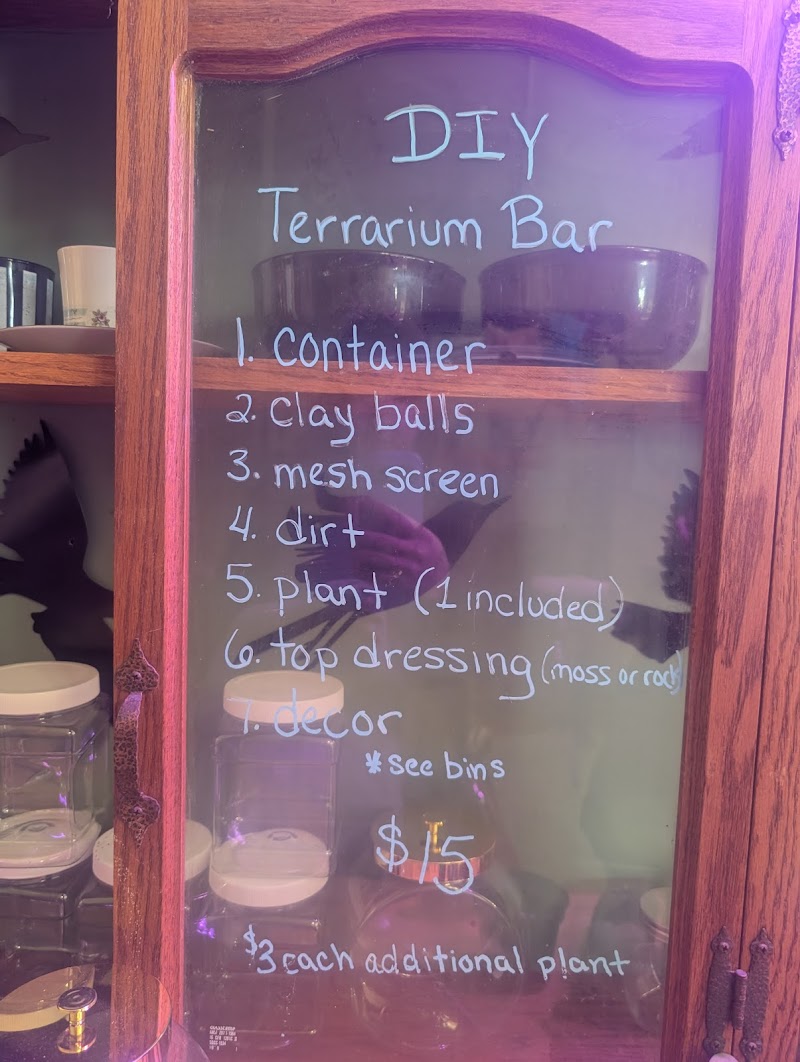 DIY
Terrarium Bar
1. container
2. clay balls
3. mesh screen
4. dirt
5. plant (1 included)
6. top dressing (moss or rock)
7. decor
*see bins
$15
$3 each additional plant